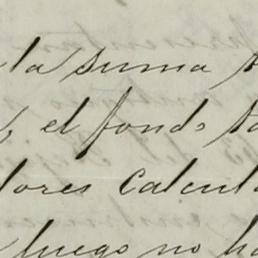 la suma
, el fondo
dores calcul
luego no ha